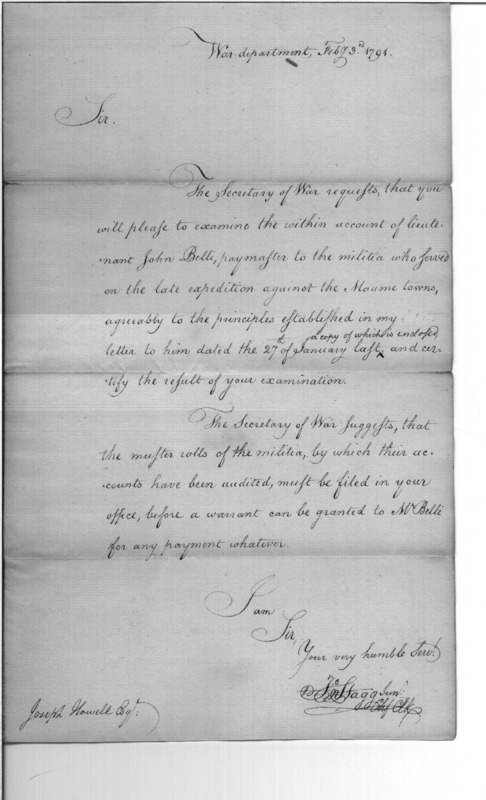 War-department, Feby 3.d 1791.
Sir.
The Secretary of War requests, that you
will please to examine the within account of lieute-
nant John Belli, paymaster to the militia who served
on the late expedition against the Maume towns,
agreeably to the principles established in my
a copy of which is enclosed
letter to him dated the 27th of January last, and cer-
tify the result of your examination.
The Secretary of War suggests, that
the muster rolls of the militia, by which their ac-
counts have been audited, must be filed in your
office, before a warrant can be granted to Mr Belli
for any payment whatever.
I am
Sir,
Your very humble Servt
Jno Stagg Junr
Chf Clk
Joseph Howell Esqr: